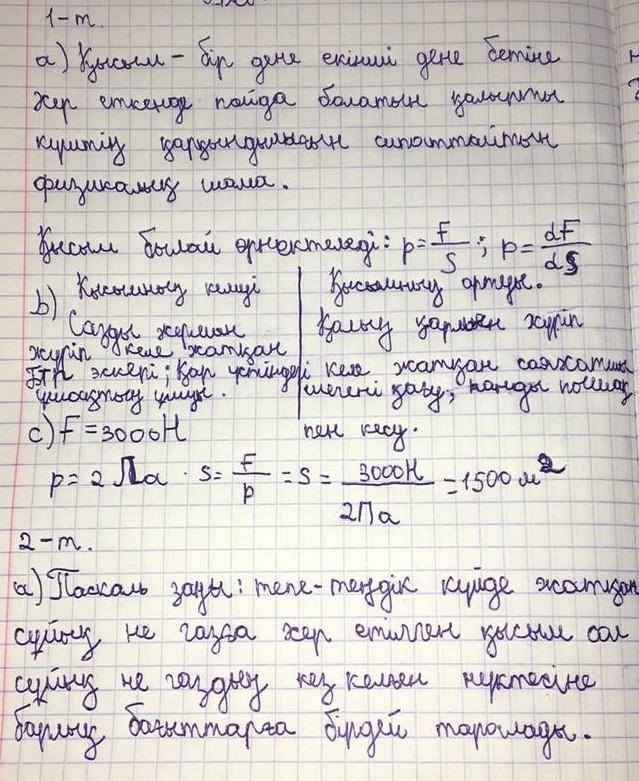 1-т.
а) Қысым – бір дене екінші дене бетіне
әсер еткенде пайда болатын қалыпты
күштің қарқындылығын сипаттайтын
физикалық шама.
Қысым былай өрнектеледі: p = F/S ; p = dF/dS
b) Қысымның кемуі
Сазды жермен
жүріп келе жатқан
әскері; Қар үстіндегі
ұшуы.
Қысымның артуы.
Қалың қармен жүріп
келе жатқан саяхатшы
шегені қағу, нанды пышақ
пен кесу.
c) F = 3000Н
p = 2 Па · S = F/p = S = 3000Н/2Па = 1500 м²
2-т.
а) Паскаль заңы: тепе-теңдік күйде жатқан
сұйық не газға әсер етілген қысым сол
сұйық не газдың кез келген нүктесіне
барлық бағыттарға бірдей таралады.